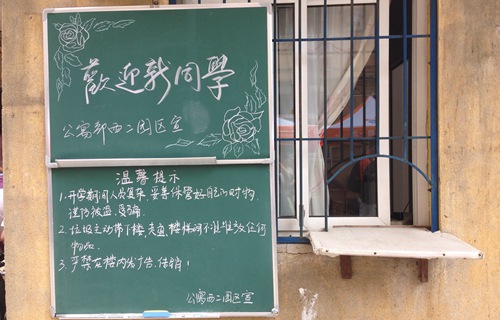 歡迎新同學
公寓部西二园区宣
温馨提示
1. 开学期间人员复杂,妥善保管好自己的财物,
谨防被盗、受骗.
2. 垃圾主动带下楼,走廊、楼梯间不准堆放任何
物品.
3. 严禁在楼内发广告、传销!
公寓西二园区宣